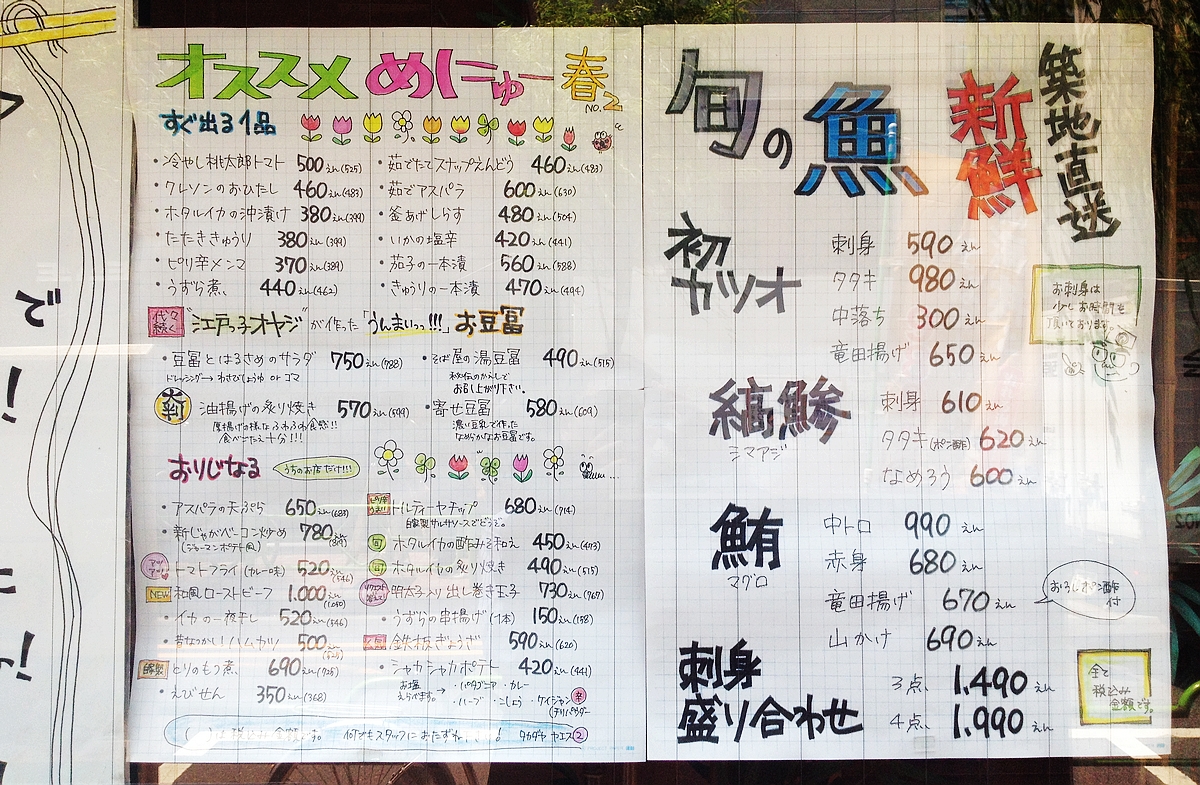 オススメ めにゅー 春 NO.2
すぐ出る1品
・冷やし桃太郎トマト 500えん(525)
・クレソンのおひたし 460えん(483)
・ホタルイカの沖漬け 380えん(399)
・たたききゅうり 380えん(399)
・ピリ辛メンマ 370えん(389)
・うずら煮 440えん(462)
・茹でたてスナップえんどう 460えん(483)
・茹でアスパラ 600えん(630)
・釜あげしらす 480えん(504)
・いかの塩辛 420えん(441)
・茄子の一本漬 560えん(588)
・きゅうりの一本漬 470えん(494)
代々続く "江戸っ子オヤジ"が作った「うんまいっっ!!!」お豆冨
・豆冨とはるさめのサラダ 750えん(788)
ドレッシング→わさびじょうゆ or ゴマ
大判 油揚げの炙り焼き 570えん(599)
厚揚げの様なふわふわ食感!!
食べごたえ十分!!!
・そば屋の湯豆冨 490えん(515)
秘伝のかえしで
お召し上がり下さい。
・寄せ豆冨 580えん(609)
濃い豆乳で作った
なめらかなお豆冨です。
おりじなる うちのお店だけ!!!
・アスパラの天ぷら 650えん(683)
・新じゃがベーコン炒め 780えん(819)
(ジャーマンポテト風)
アツアツ トマトフライ(カレー味) 520えん(546)
NEW 和風ローストビーフ 1.000えん(1.050)
・イカの一夜干し 520えん(546)
・昔なつかしいハムカツ 500えん(525)
自家製 とりのもつ煮 690えん(725)
・えびせん 350えん(368)
トルティーヤチップ 680えん(714)
自家製サルサソースでどうぞ。
旬 ホタルイカの酢みそ和え 450えん(473)
旬 ホタルイカの炙り焼き 490えん(515)
明太子入り出し巻き玉子 730えん(767)
・うずらの串揚げ(1本) 150えん(158)
鉄板ぎょうざ 590えん(620)
・シャカシャカポテト 420えん(441)
お塩えらべます。→ ・パタゴニア ・カレー
・ハーブ ・こしょう ・ケイジャン 辛
(チリパウダー
税込み金額です。 何でもスタッフにおたずね
タカダヤ ヤエス②
旬の魚 新鮮 築地直送
初ガツオ
刺身 590えん
タタキ 980えん
中落ち 300えん
竜田揚げ 650えん
お刺身は
少しお時間を
頂いております。
縞鯵
シマアジ
刺身 610えん
タタキ(ポン酢) 620えん
なめろう 600えん
鮪
マグロ
中トロ 990えん
赤身 680えん
竜田揚げ 670えん
おろしポン酢付
山かけ 690えん
刺身
盛り合わせ
3点 1.490えん
4点 1.990えん
全て
税込み
金額です。
で
!
!